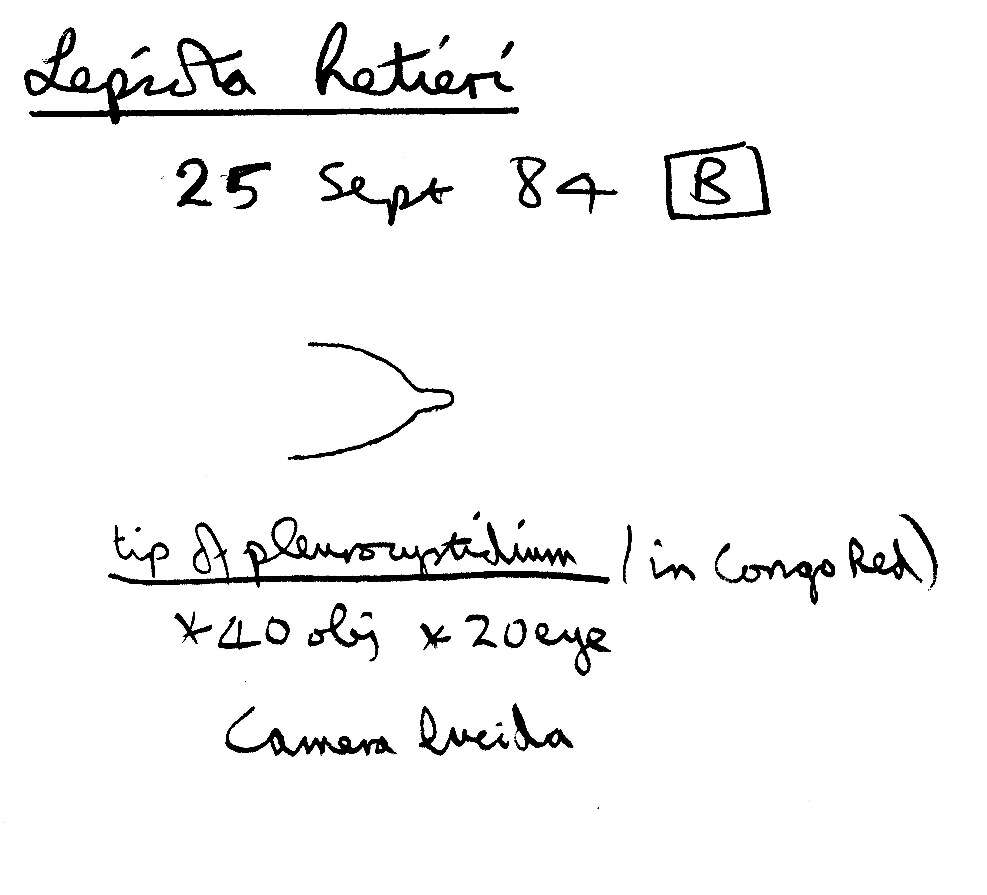 Lepiota hetieri
25 Sept 84 B
tip of pleurocystidium (in Congo Red)
*40 obj *20 eye
Camera lucida